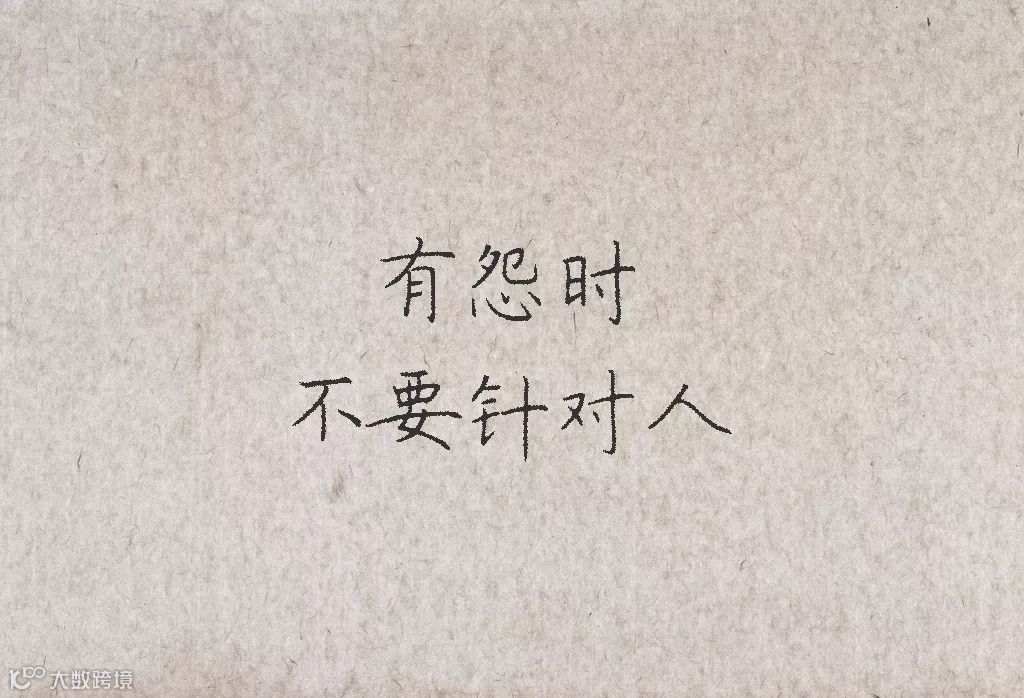 有怨时
不要针对人
大数跨境